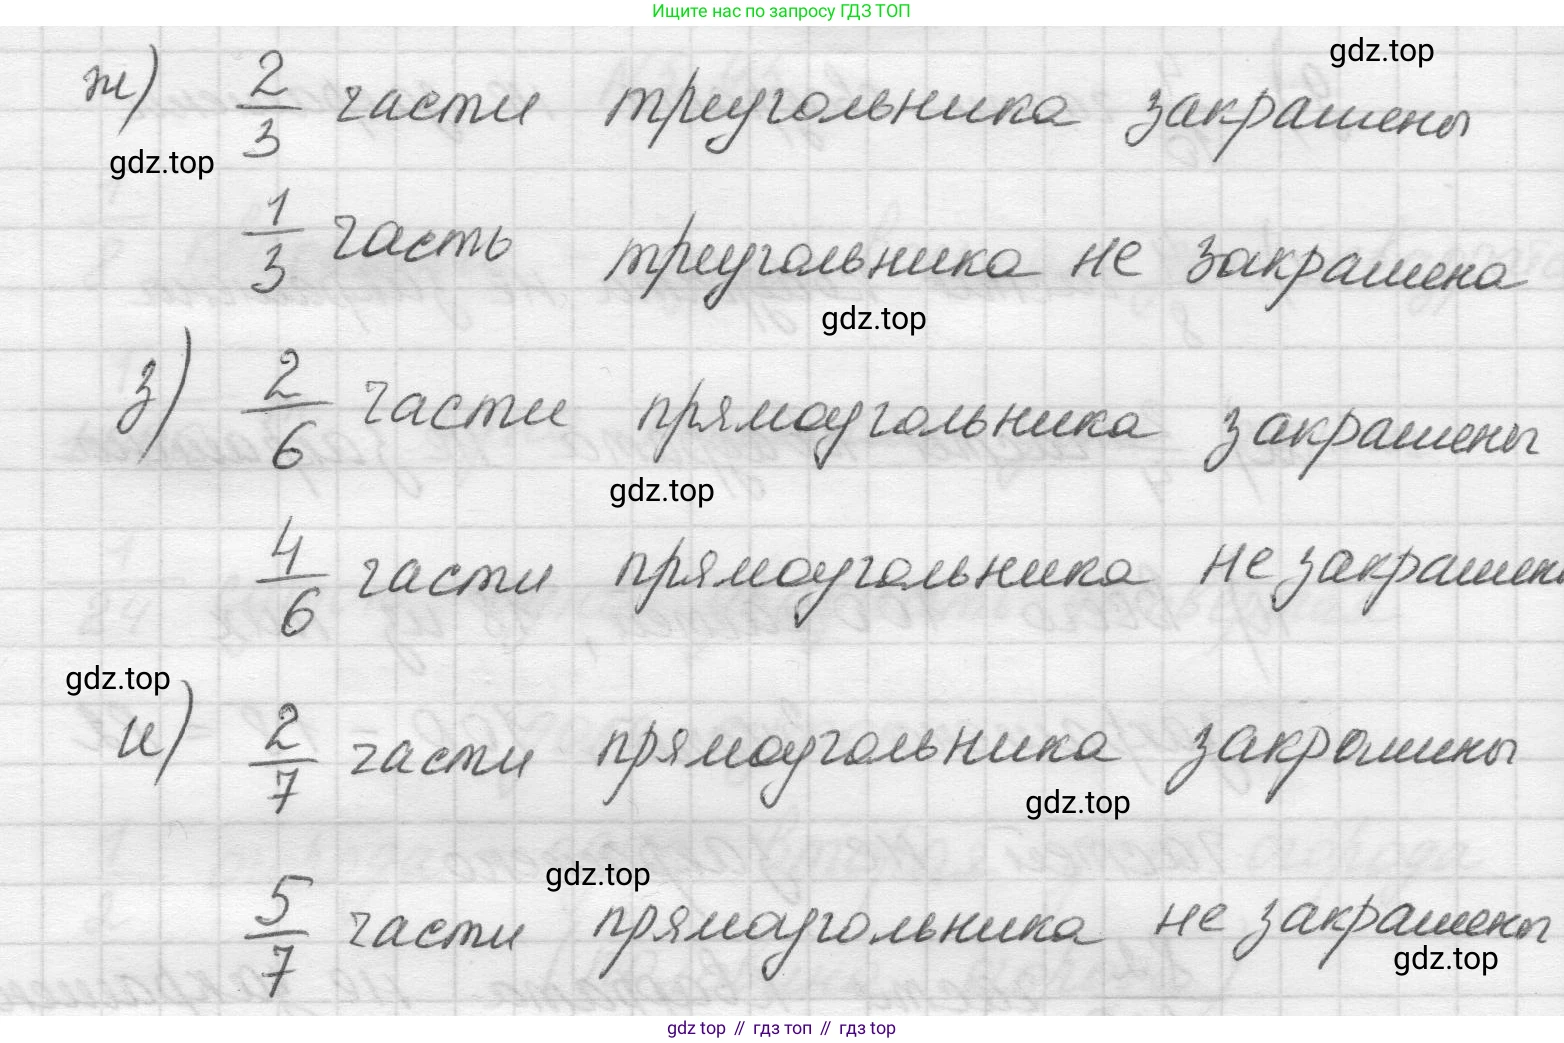 Ищите нас по запросу ГДЗ ТОП
gdz.top
ж) 2/3 части треугольника закрашены
gdz.top
1/3 часть треугольника не закрашена
gdz.top
з) 2/6 части прямоугольника закрашены
gdz.top
4/6 части прямоугольника не закрашены
gdz.top
и) 2/7 части прямоугольника закрашены
gdz.top
gdz.top
5/7 части прямоугольника не закрашены
gdz.top
gdz top // гдз топ // гдз top